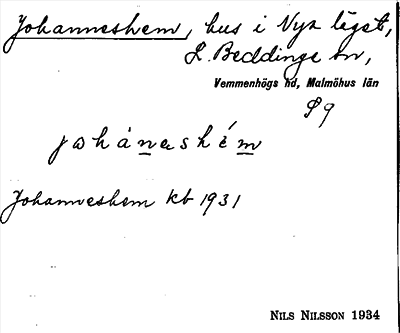 Johanneshem, hus i Nya läget,
L. Beddinge sn,
Vemmenhögs hd, Malmöhus län
S9
johánashém
Johanneshem kb 1931
NILS NILSSON 1934